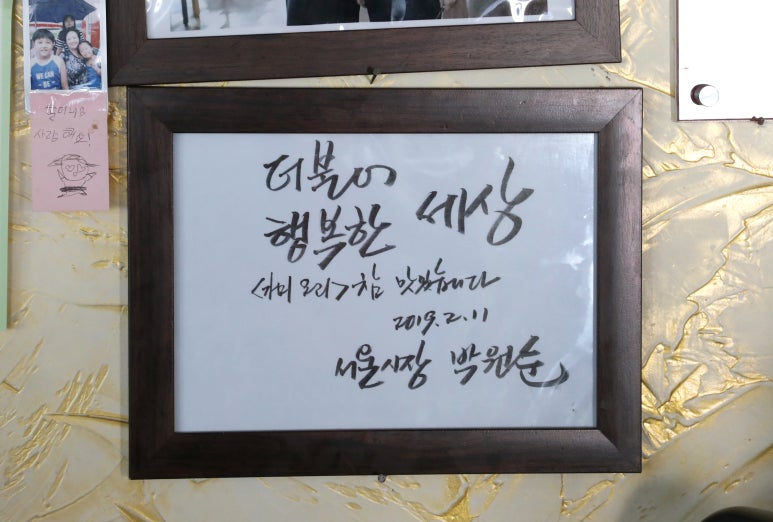 WE CAN
BE
사랑해요!
더불어
행복한 세상
오리가 참 맛있습니다
2019. 2. 11
서울시장 박원순